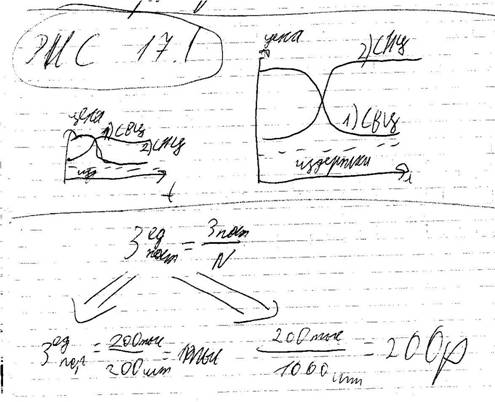 ЭИС 17.1
цена
1) СВЦ
2) СНЦ
изд
t
цена
2) СНЦ
1) СВЦ
издержки
t
З ед пост = З пост / N
З ед пост = 200тыс / 200шт = 1тыс
200тыс / 1000шт = 200р